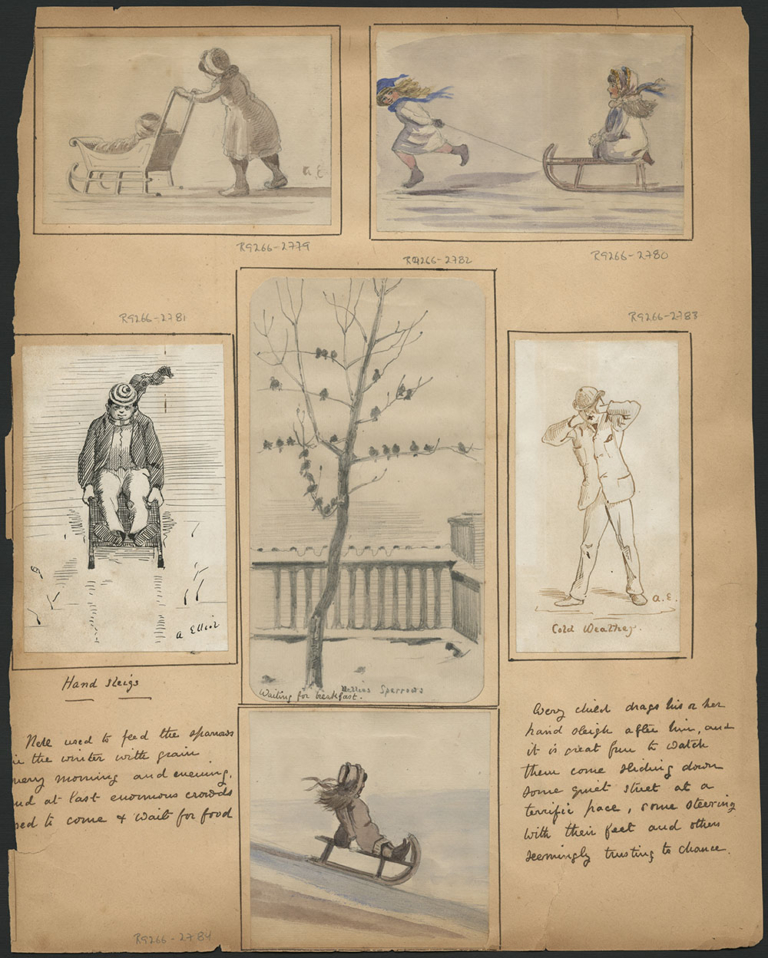 a. E.
R9266-2779
R9266-2782
R9266-2780
R9266-2781
R9266-2783
a Elliot
a. E.
Cold Weather.
Nellies Sparrows
Waiting for breakfast.
Hand sleigs
Nell used to feed the sparrows
in the winter with grain
every morning and evening.
and at last enormous crowds
used to come & wait for food
Every child drags his or her
hand sleigh after him, and
it is great fun to watch
them come sliding down
some quiet street at a
terrific pace, some steering
with their feet and others
seemingly trusting to chance.
R9266-2784